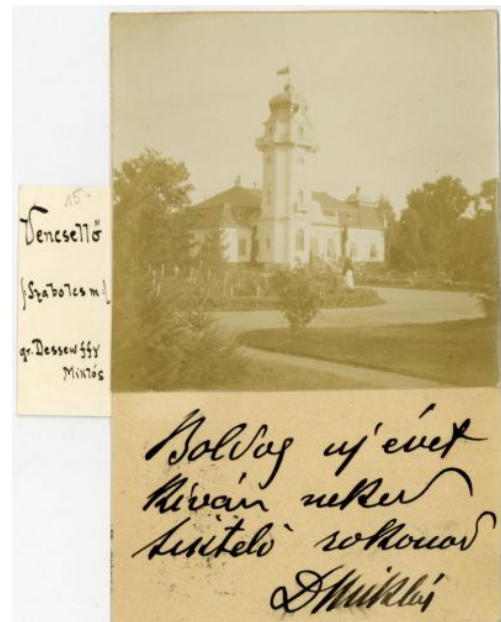 15.-
Vencsellő
(Szabolcs m.)
gr. Dessewffy
Miklós
Boldog uj évet
kiván neked
tisztelő rokonod
DMiklós